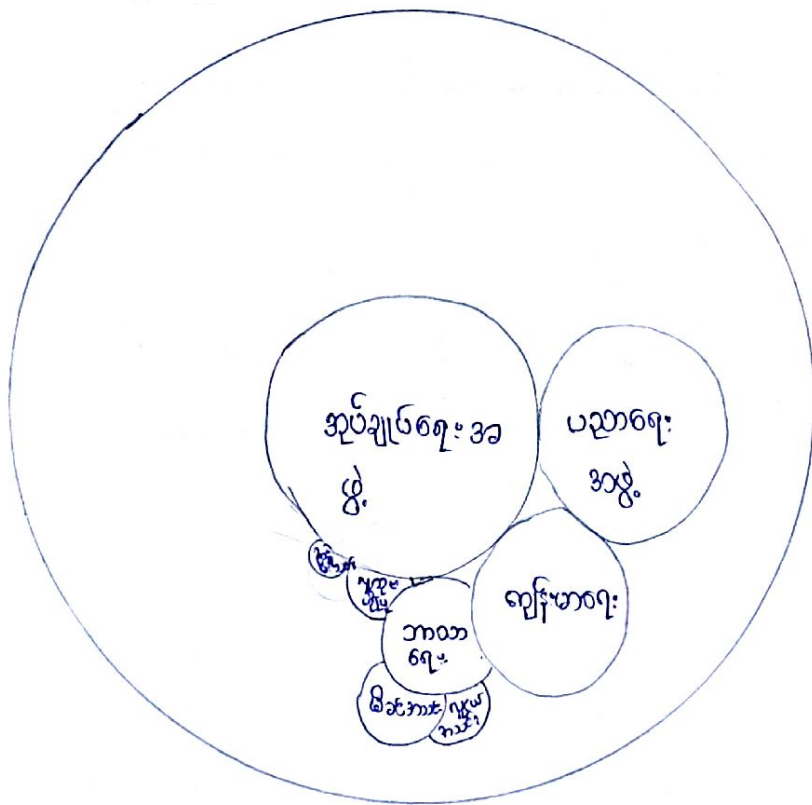 အုပ်ချုပ်ရေးအ
ဖွဲ့
ပညာရေး
အဖွဲ့
ကျန်းမာရေး
ဘာသာ
ရေး
မိခင်အသင်း
လူငယ်
အသင်း